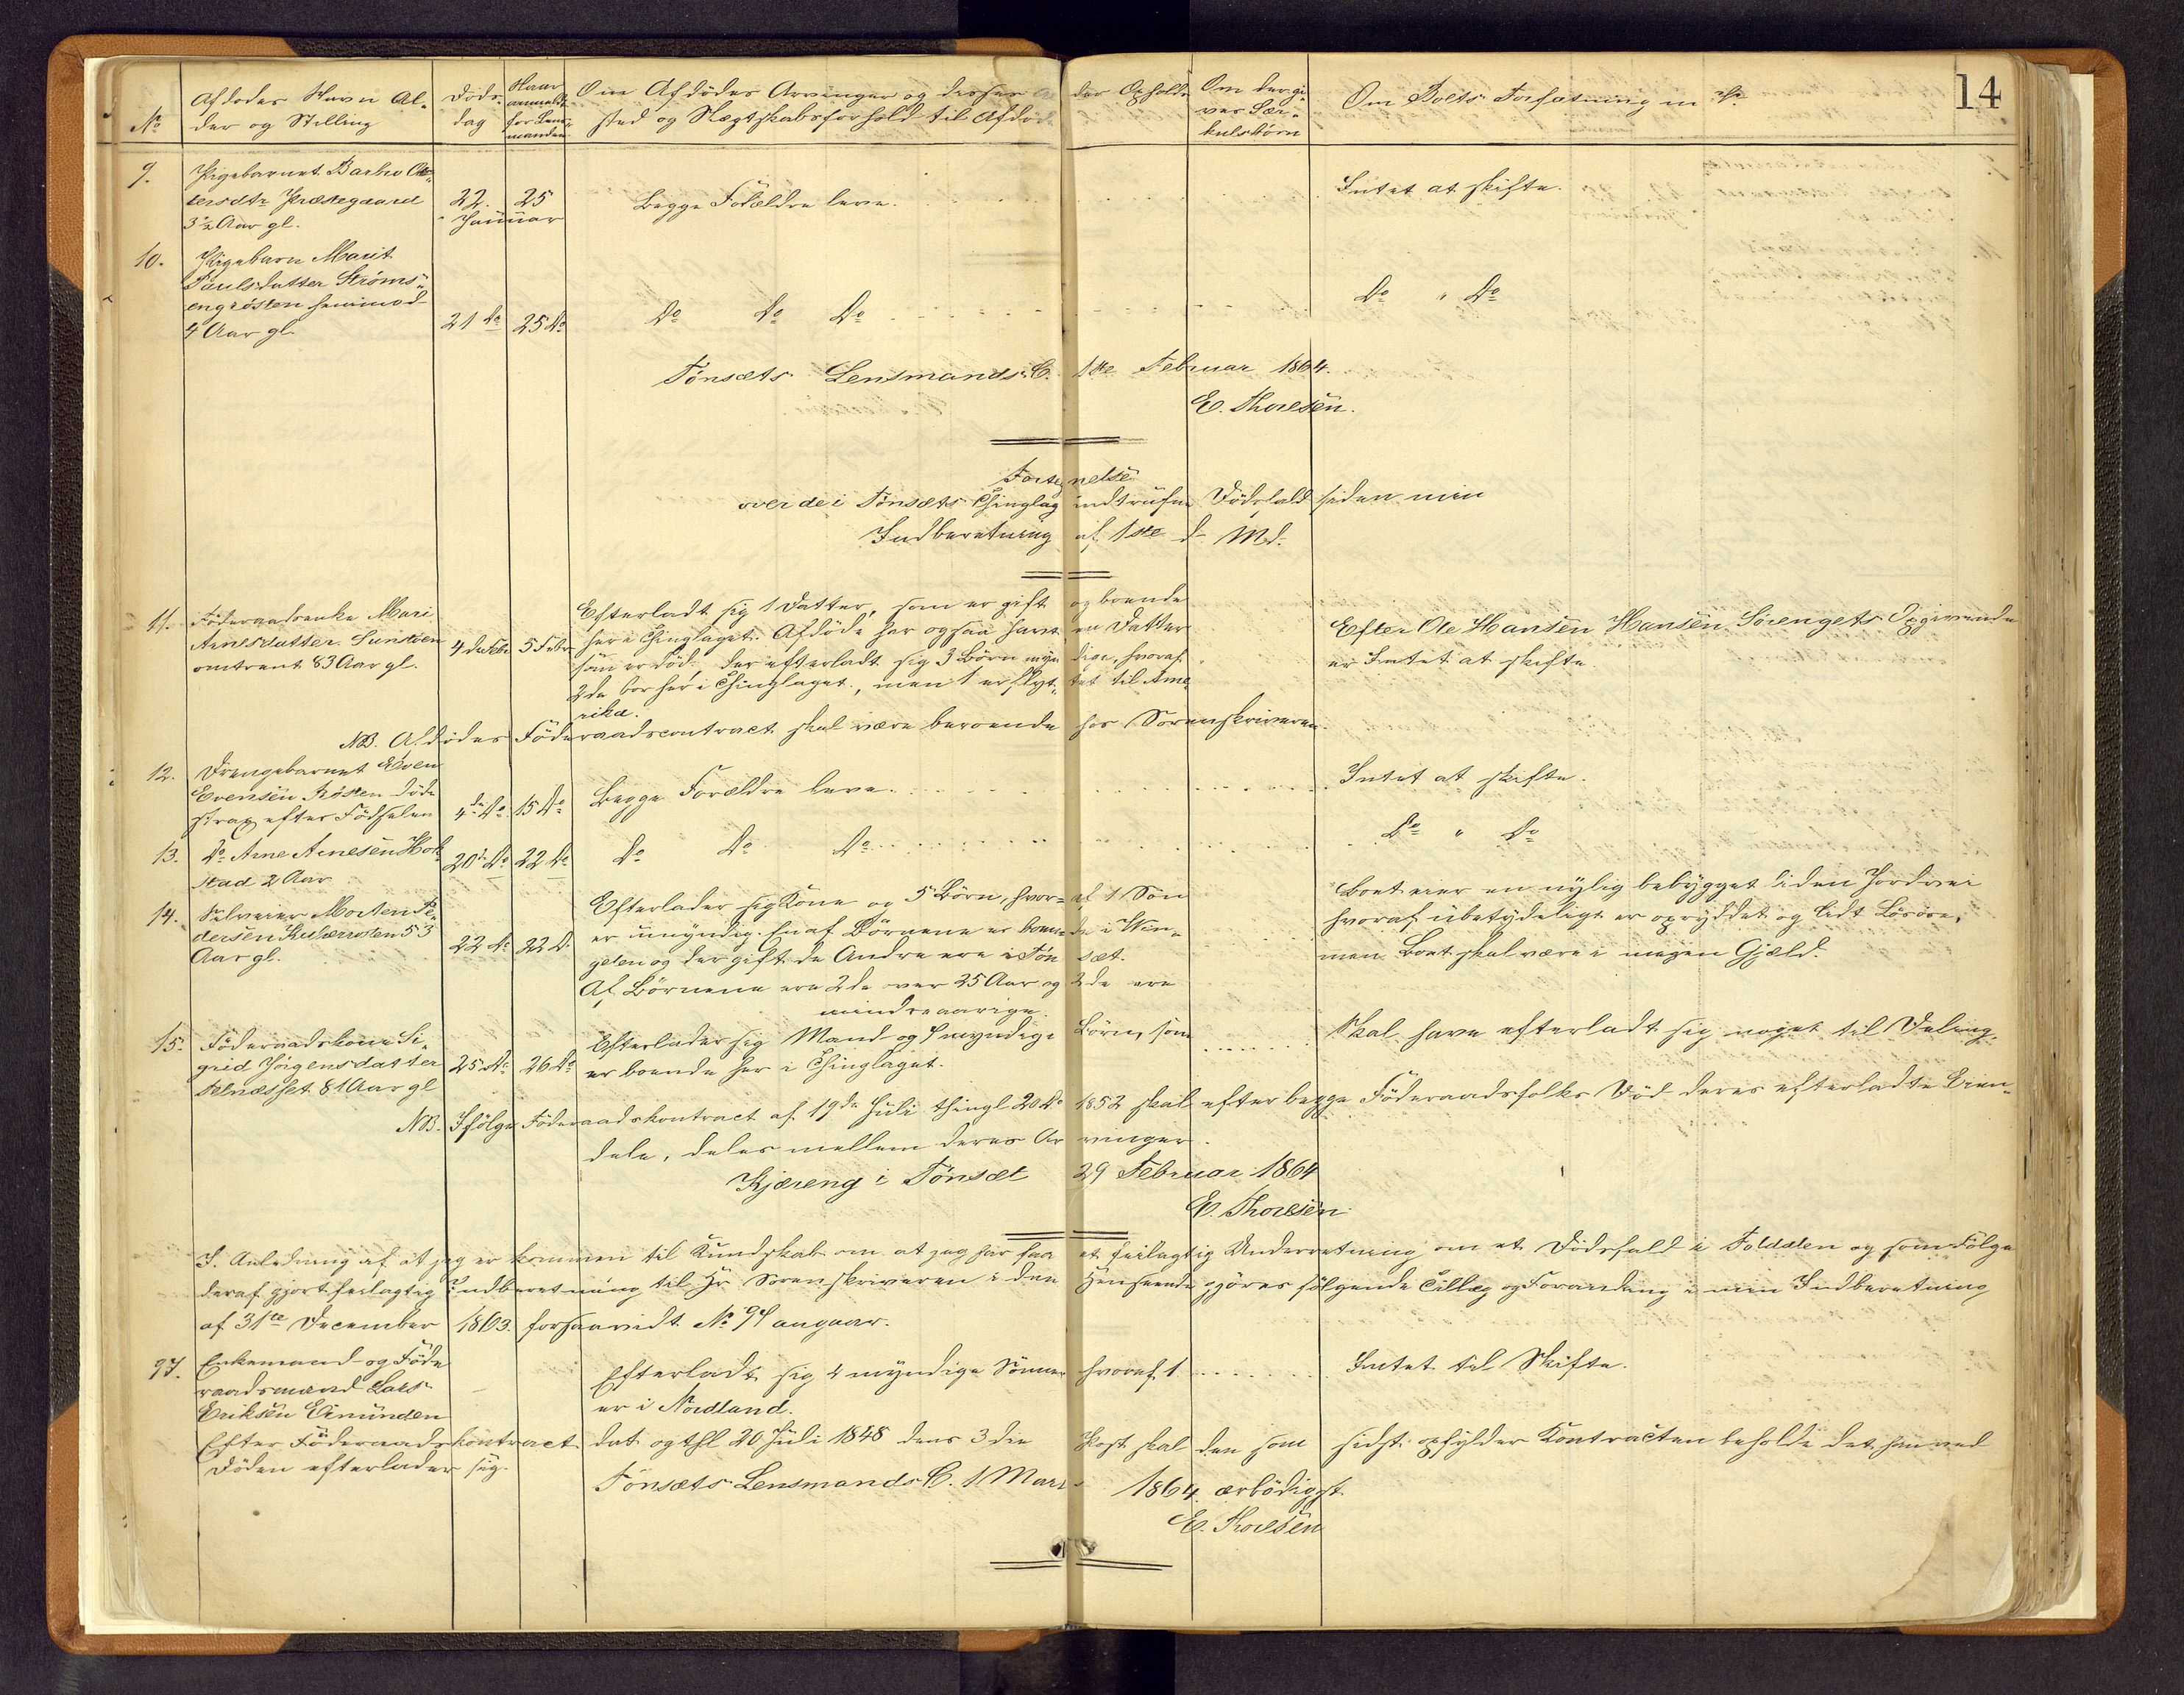 14
No
Afdødes Navn Al-
der og Stilling
Døds-
dag
Naar
anmeldt
for Lens-
manden
Om Afdødes Arvinger og disses
des Opholds-
sted og Slægtskabsforhold til Afdøde
Om der gi-
ves Sær-
kulsbørn
Om Boets Forfatning m. v.
9.
Pigebarnet Barbro
tersdtr Præstegaard
3½ Aar gl.
22. 25
Januar
Begge Forældre leve.
Intet at skifte.
10.
Pigebarn Marit
Paulsdatter Strøms-
engrøsten henimod
4 Aar gl.
21 do
25 do
do do do
do " do
Tönsæts Lensmands C. 1ste Februar 1864.
E. Thoresen.
Fortegnelse
over de i Tönsæts Thinglag indtrufne Dödsfald siden min
Indberetning af 1ste d. Md.
11.
Föderaadsenke Mari
Arnesdatter Sundöen
omtrent 83 Aar gl.
4de Febr
5 Febr
Efterladt sig 1 Datter, som er gift og boende
her i Thinglaget. Afdöde har ogsaa havt en Datter
som er död. der efterladt sig 3 Börn myndige, hvoraf
2de bor her i Thinglaget, men 1 er flyt- tet til Ame-
rika.
Efter Ole Hansen Hansen Sörengets Opgivende
er Intet at skifte
NB. Afdödes Föderaadscontract skal være beroende hos Sorenskriveren.
12.
Drengebarnet Even
Evensen Røsten døde
strax efter Födselen
4de do
15 do
Begge Forældre leve.
Intet at skifte.
13.
do Arne Arnesen Hok-
stad 2 Aar
20de do
22 do
do do do
do " do
14.
Selveier Morten Pe-
dersen 53
Aar gl.
22 do
22 d.
Efterlader sig Kone og 5 Börn, hvor- af 1 Sön
er umyndig. En af Börnene er boen- de i
gelen og der gift. de Andre ere i Tön- sæt.
Af Börnene ere 2de over 25 Aar og 2de ere
mindreaarige.
Boet eier en nylig bebygget liden Jordvei
hvoraf ubetydeligt er opryddet og lidt Lösöre,
men Boet skal være i megen Gjæld.
15.
Föderaadskone Si-
grid Jörgensdatter
Telnesset 81 Aar gl
25 do
26 do
Efterlader sig Mand og 4 myndige Börn, som
er boende her i Thinglaget.
Skal have efterladt sig noget til Deling.
NB. Ifölge Föderaadskontract af 19de Juli thingl 20 do 1852 skal efter begge Föderaadsfolks Död deres efterladte Eien-
dele, deles mellem deres Ar- vinger.
Kjæreng i Tönsæt 29 Februar 1864
E. Thoresen
I Anledning af at jeg er kommen til Kundskab om at jeg har faa et feilagtig Underretning om et Dödsfald i Foldalen og som Fölge
deraf gjort feilagtig Indberetning til Hr Sorenskriveren i den Henseende gjöres fölgende Tillæg og Forandring i min Indberetning
af 31te December 1863. forsaavidt No 97 angaar.
97.
Enkemand og Föde-
raadsmand Lars
Eriksen Einunden
Efterladt sig 4 myndige Sönner hvoraf 1
er i Nordland.
Intet til Skifte.
Efter Föderaadskontract dat. og thl 20 Juli 1848 dens 3die Post skal den som sidst opfylder Kontracten beholde det han ved
Döden efterlader sig.
Tönsæts Lensmands C. 1 Marts 1864 ærbödigst.
E. Thoresen